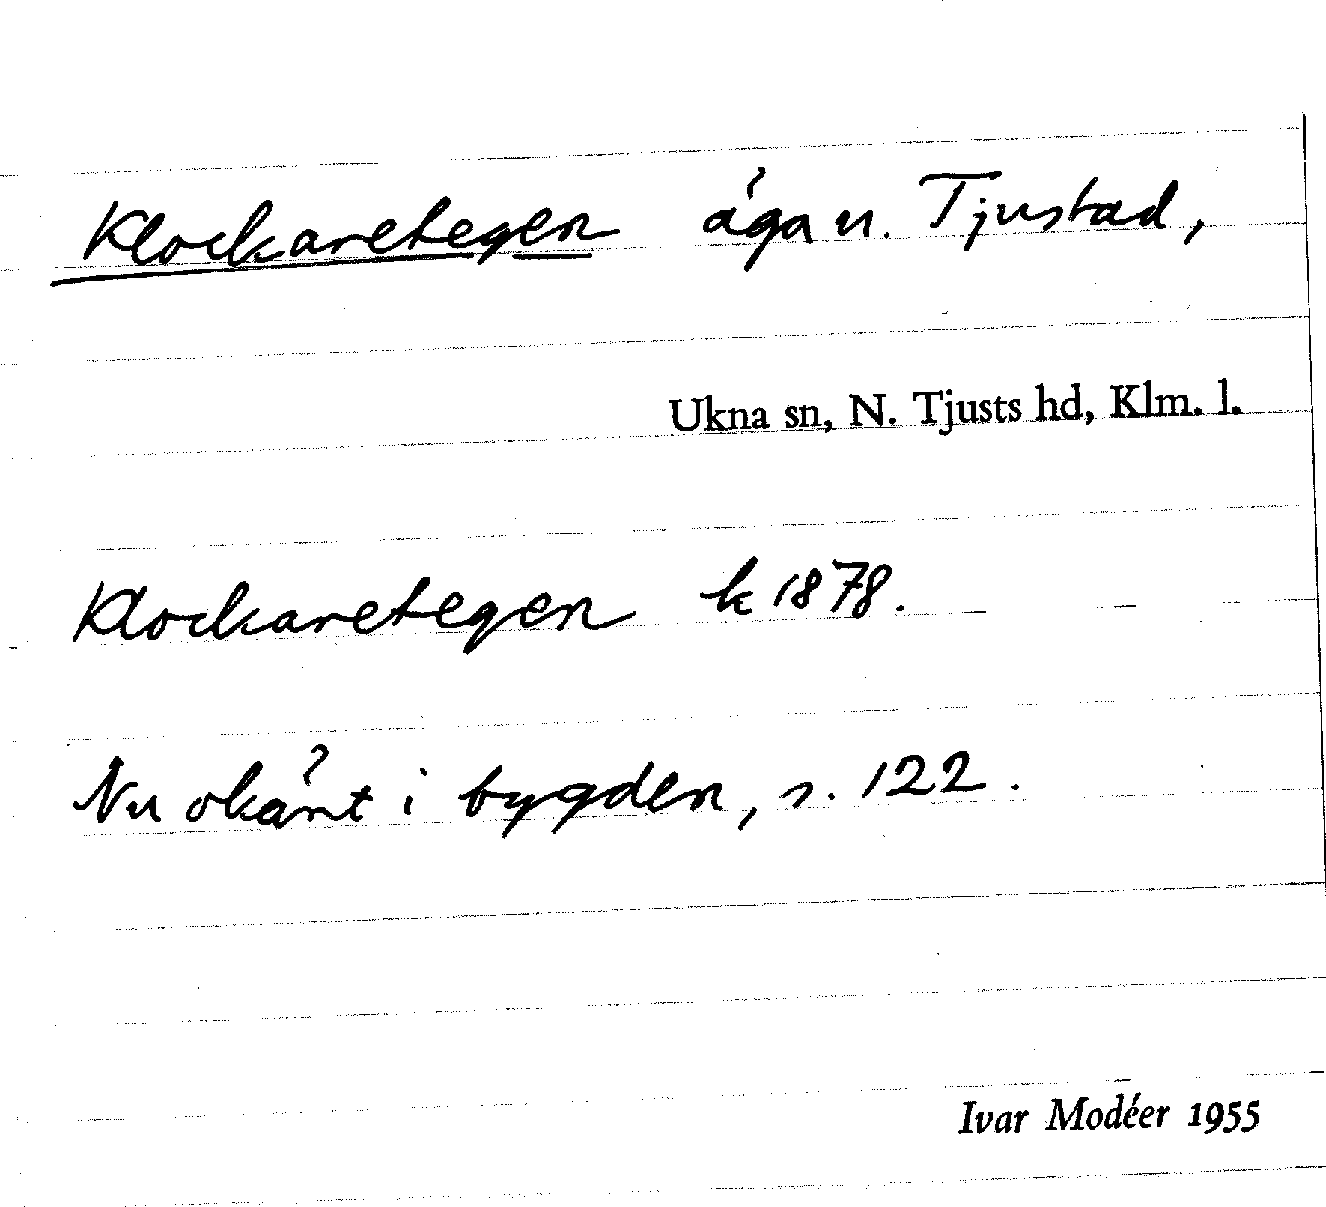 Klockaretegen äga u. Tjustad,
Ukna sn, N. Tjusts hd, Klm. l.
Klockaretegen k 1878.
Nu okänt i bygden, s. 122.
Ivar Modéer 1955